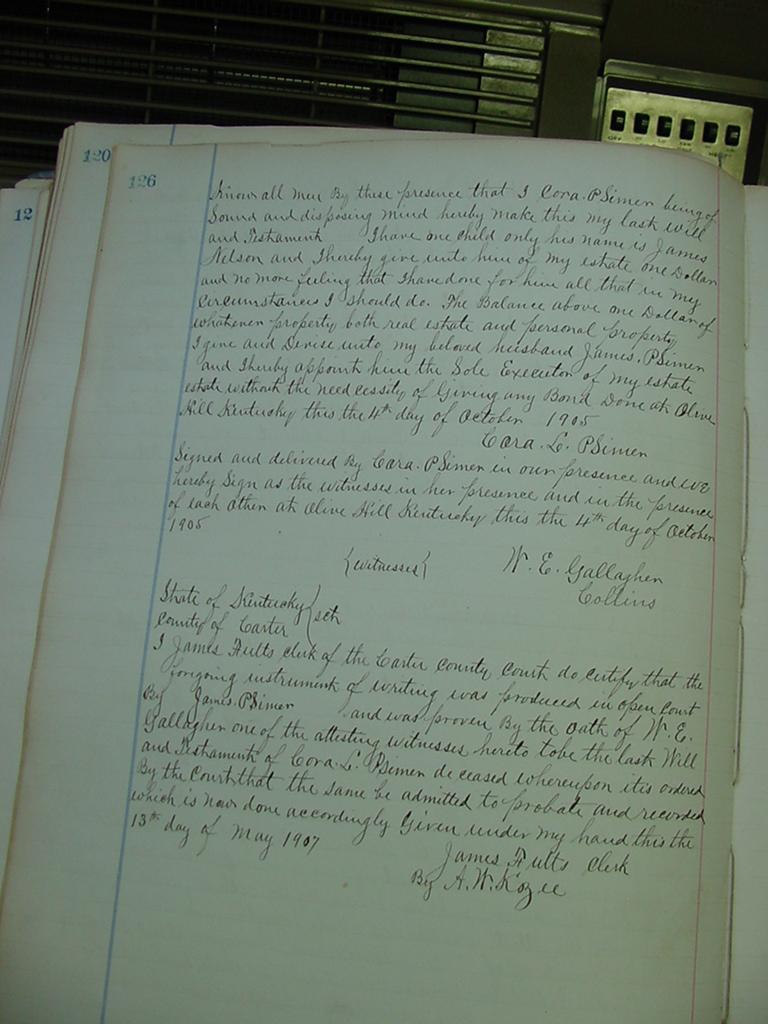 120
126
12
Know all men By these presence that I Cora. PSimer being of
Sound and disposing mind hereby make this my last will
and Testament I have one child only his name is James
Nelson and I hereby give unto him of my estate one Dollar
and no more feeling that I have done for him all that in my
Circumstances I should do. The Balance above one Dollar of
whatever property both real estate and personal property
I give and Devise unto my beloved husband James. PSimer
and I hereby appoint him the Sole Executor of my estate
estate without the needcessity of Giving any Bond Done at Olive
Hill Kentucky this the 4th day of October 1905
Cora. L. PSimer
Signed and delivered By Cora. PSimer in our presence and we
hereby Sign as the witnesses in her presence and in the presence
of each other at Olive Hill Kentucky this the 4th day of October
1905
{witnesses{ W. E. Gallagher
Collins
State of Kentucky { sct
County of Carter
I James Fults clerk of the Carter County Court do certify that the
forgoing instrument of writing was produced in open Court
By James. PSimer and was proven By the oath of W. E.
Gallagher one of the attesting witnesses hereto to be the last Will
and Testament of Cora. L. PSimer deceased whereupon it is ordered
By the Court that the same be admitted to probate and recorded
which is now done accordingly Given under my hand this the
13th day of May 1907
James Fults Clerk
By A. W. Kozee